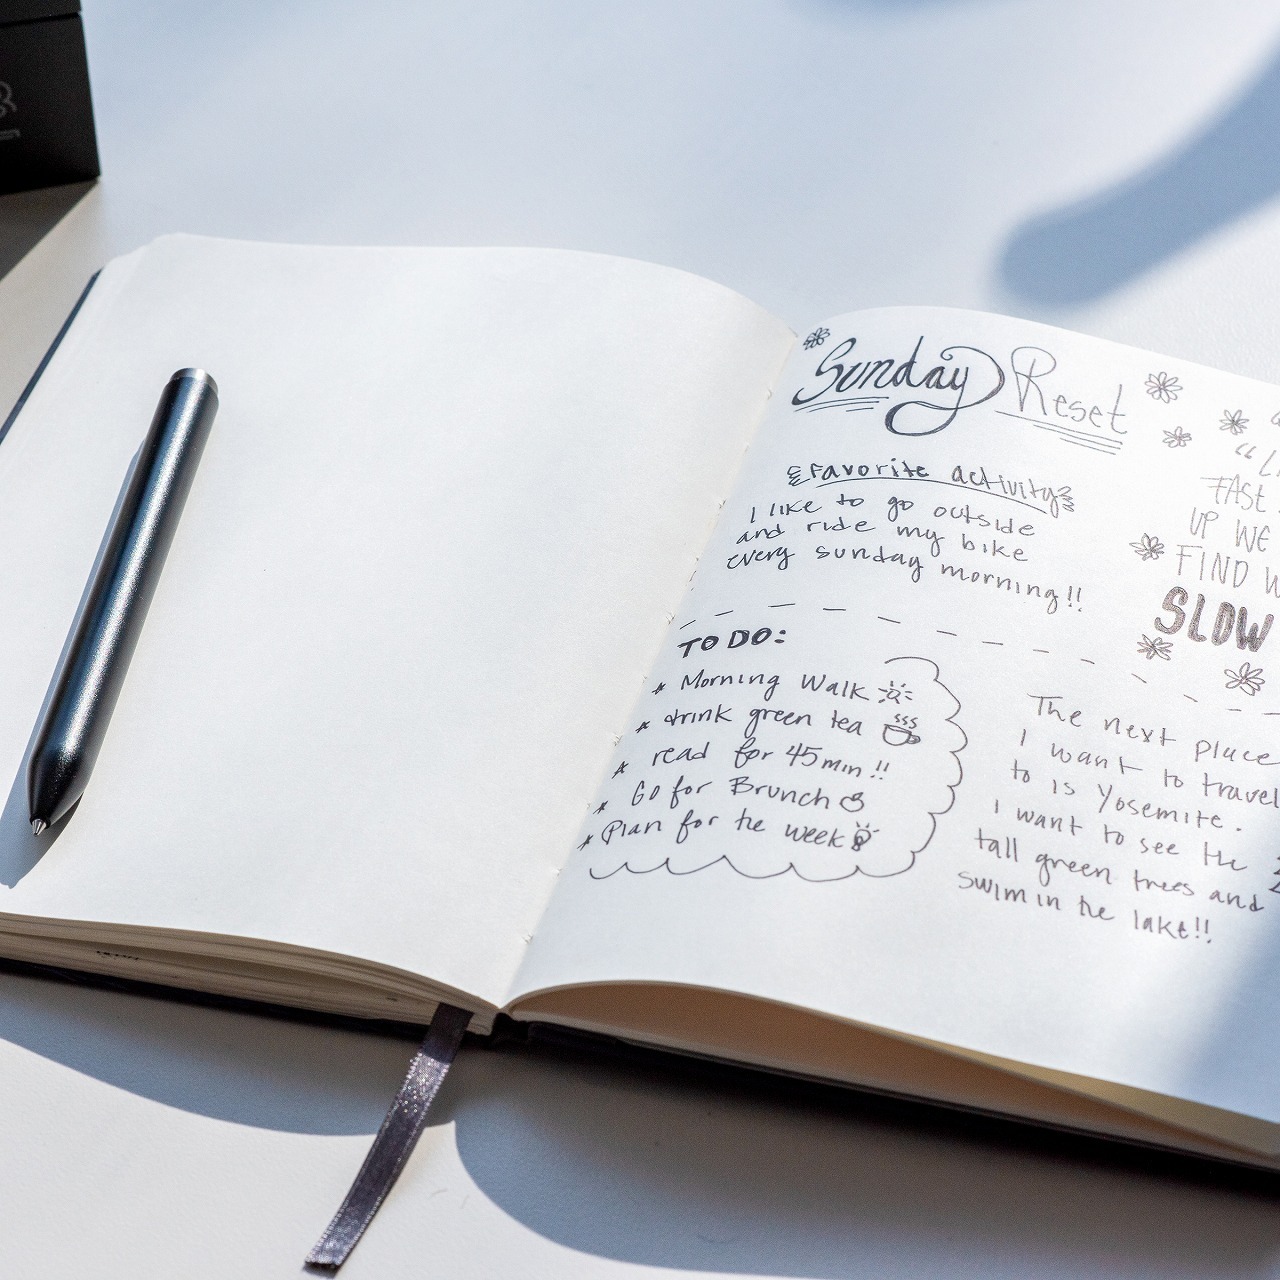 Sunday Reset
Favorite activity
I like to go outside
and ride my bike
every sunday morning!!
FAST
UP WE
FIND
SLOW
TO DO:
Morning Walk
drink green tea
read for 45min!!
Go for Brunch
Plan for the week
The next place
I want to travel
to is Yosemite.
I want to see the
tall green trees and
swim in the lake!!